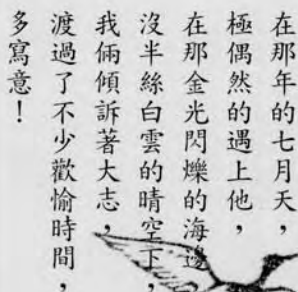 在那年的七月天，
極偶然的遇上他，
在那金光閃爍的海邊
沒半絲白雲的晴空下，
我倆傾訴著大志，
渡過了不少歡愉時間，
多寫意！